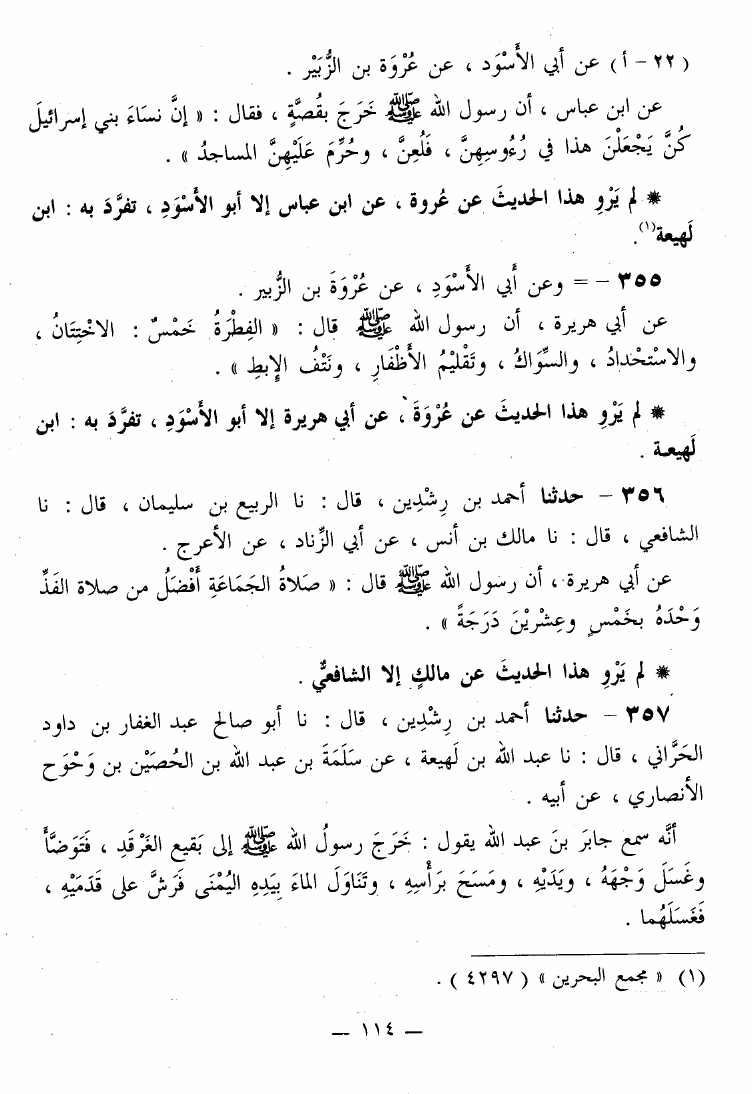 ( ٢٢ - أ ) عن أبي الأَسْوَد ، عن عُرْوَة بن الزُّبَيْر .
عن ابن عباس ، أن رسول الله ﷺ خَرَجَ بِقُصَّةٍ ، فقال : « إنَّ نسَاءَ بني إسرائيلَ
كُنَّ يَجْعَلْنَ هذا في رُءُوسِهِنَّ ، فَلُعِنَّ ، وحُرِّمَ عَلَيْهِنَّ المساجدُ » .
* لم يَرْوِ هذا الحديثَ عن عُروة ، عن ابن عباس إلا أبو الأَسْوَدِ ، تفرَّدَ به : ابن
لَهيعة(١).
٣٥٥ - = وعن أَبي الأَسْوَدِ ، عن عُرْوَةَ بن الزُّبير .
عن أبي هريرة ، أن رسول الله ﷺ قال : « الفِطْرَةُ خَمْسٌ : الاخْتِتَانُ ،
والاسْتِحْدادُ ، والسِّوَاكُ ، وتَقْلِيْمُ الأَظْفَارِ ، ونَتْفُ الإِبطِ » .
* لم يَرْوِ هذا الحديثَ عن عُرْوَةَ ، عن أبي هريرة إلا أبو الأَسْوَدِ ، تفرَّدَ به : ابن
لَهيعـة .
٣٥٦ - حدثنا أحمد بن رِشْدِين ، قال : نا الربيع بن سليمان ، قال : نا
الشافعي ، قال : نا مالك بن أنس ، عن أبي الزِّناد ، عن الأعرج .
عن أبي هريرة ، أن رسول الله ﷺ قال : « صَلاةُ الجَمَاعَةِ أَفْضَلُ من صلاة الفَذِّ
وَحْدَهُ بخَمْسٍ وعِشْرِيْنَ دَرَجَةً » .
* لم يَرْوِ هذا الحديثَ عن مالكٍ إلا الشافعيُّ .
٣٥٧ - حدثنا أحمد بن رِشْدِين ، قال : نا أبو صالح عبد الغفار بن داود
الحَرَّاني ، قال : نا عبد الله بن لَهيعة ، عن سَلَمَةَ بن عبد الله بن الحُصَيْن بن وَحْوَح
الأنصاري ، عن أبيه .
أنَّه سمع جابرَ بنَ عبد الله يقول : خَرَجَ رسولُ الله ﷺ إلى بَقيع الغَرْقَدِ ، فَتَوَضَّأَ
وغَسَلَ وَجْهَهُ ، ويَدَيْهِ ، ومَسَحَ بَرَأْسِهِ ، وتَنَاوَلَ الماءَ بِيَدِهِ اليُمْنَى فَرَشَّ على قَدَمَيْهِ ،
فَغَسَلَهُما .
(١) « مجمع البحرين » ( ٤٢٩٧ ) .
— ١١٤ —